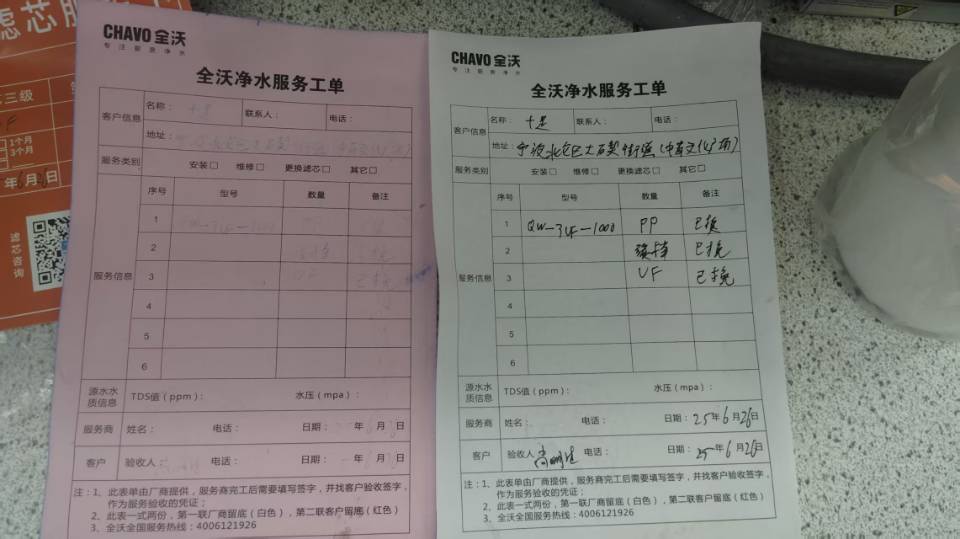 滤芯服
三级
1个月
3个月
年6月 日
滤芯咨询
CHAVO 全沃
专注厨房净水
全沃净水服务工单
客户信息
名称： 十足
联系人：
电话：
地址：
服务类别
安装□ 维修□ 更换滤芯□ 其它□
服务信息
序号 型号 数量 备注
1 QW-3UF-1000
2
3 UF 已换
4
5
6
源水水质信息
TDS值（ppm）： 水压（mpa）：
服务商 姓名： 电话： 日期： 年6月 日
客户 验收人 电话： 日期： 年6月 日
注：1、此表单由厂商提供，服务商完工后需要填写签字，并找客户验收签字，
作为服务验收的凭证；
2、此表一式两份，第一联厂商留底（白色），第二联客户留底（红色）
3、全沃全国服务热线：4006121926
CHAVO 全沃
专注厨房净水
全沃净水服务工单
客户信息
名称： 十足
联系人：
电话：
地址：宁波北仑区大石契街道
服务类别
安装□ 维修□ 更换滤芯□ 其它□
服务信息
序号 型号 数量 备注
1 QW-3UF-1000 PP 已换
2 已换
3 UF 已换
4
5
6
源水水质信息
TDS值（ppm）： 水压（mpa）：
服务商 姓名： 电话： 日期：25年6月26日
客户 验收人 电话： 日期：25年6月26日
注：1、此表单由厂商提供，服务商完工后需要填写签字，并找客户验收签字，
作为服务验收的凭证；
2、此表一式两份，第一联厂商留底（白色），第二联客户留底（红色）
3、全沃全国服务热线：4006121926